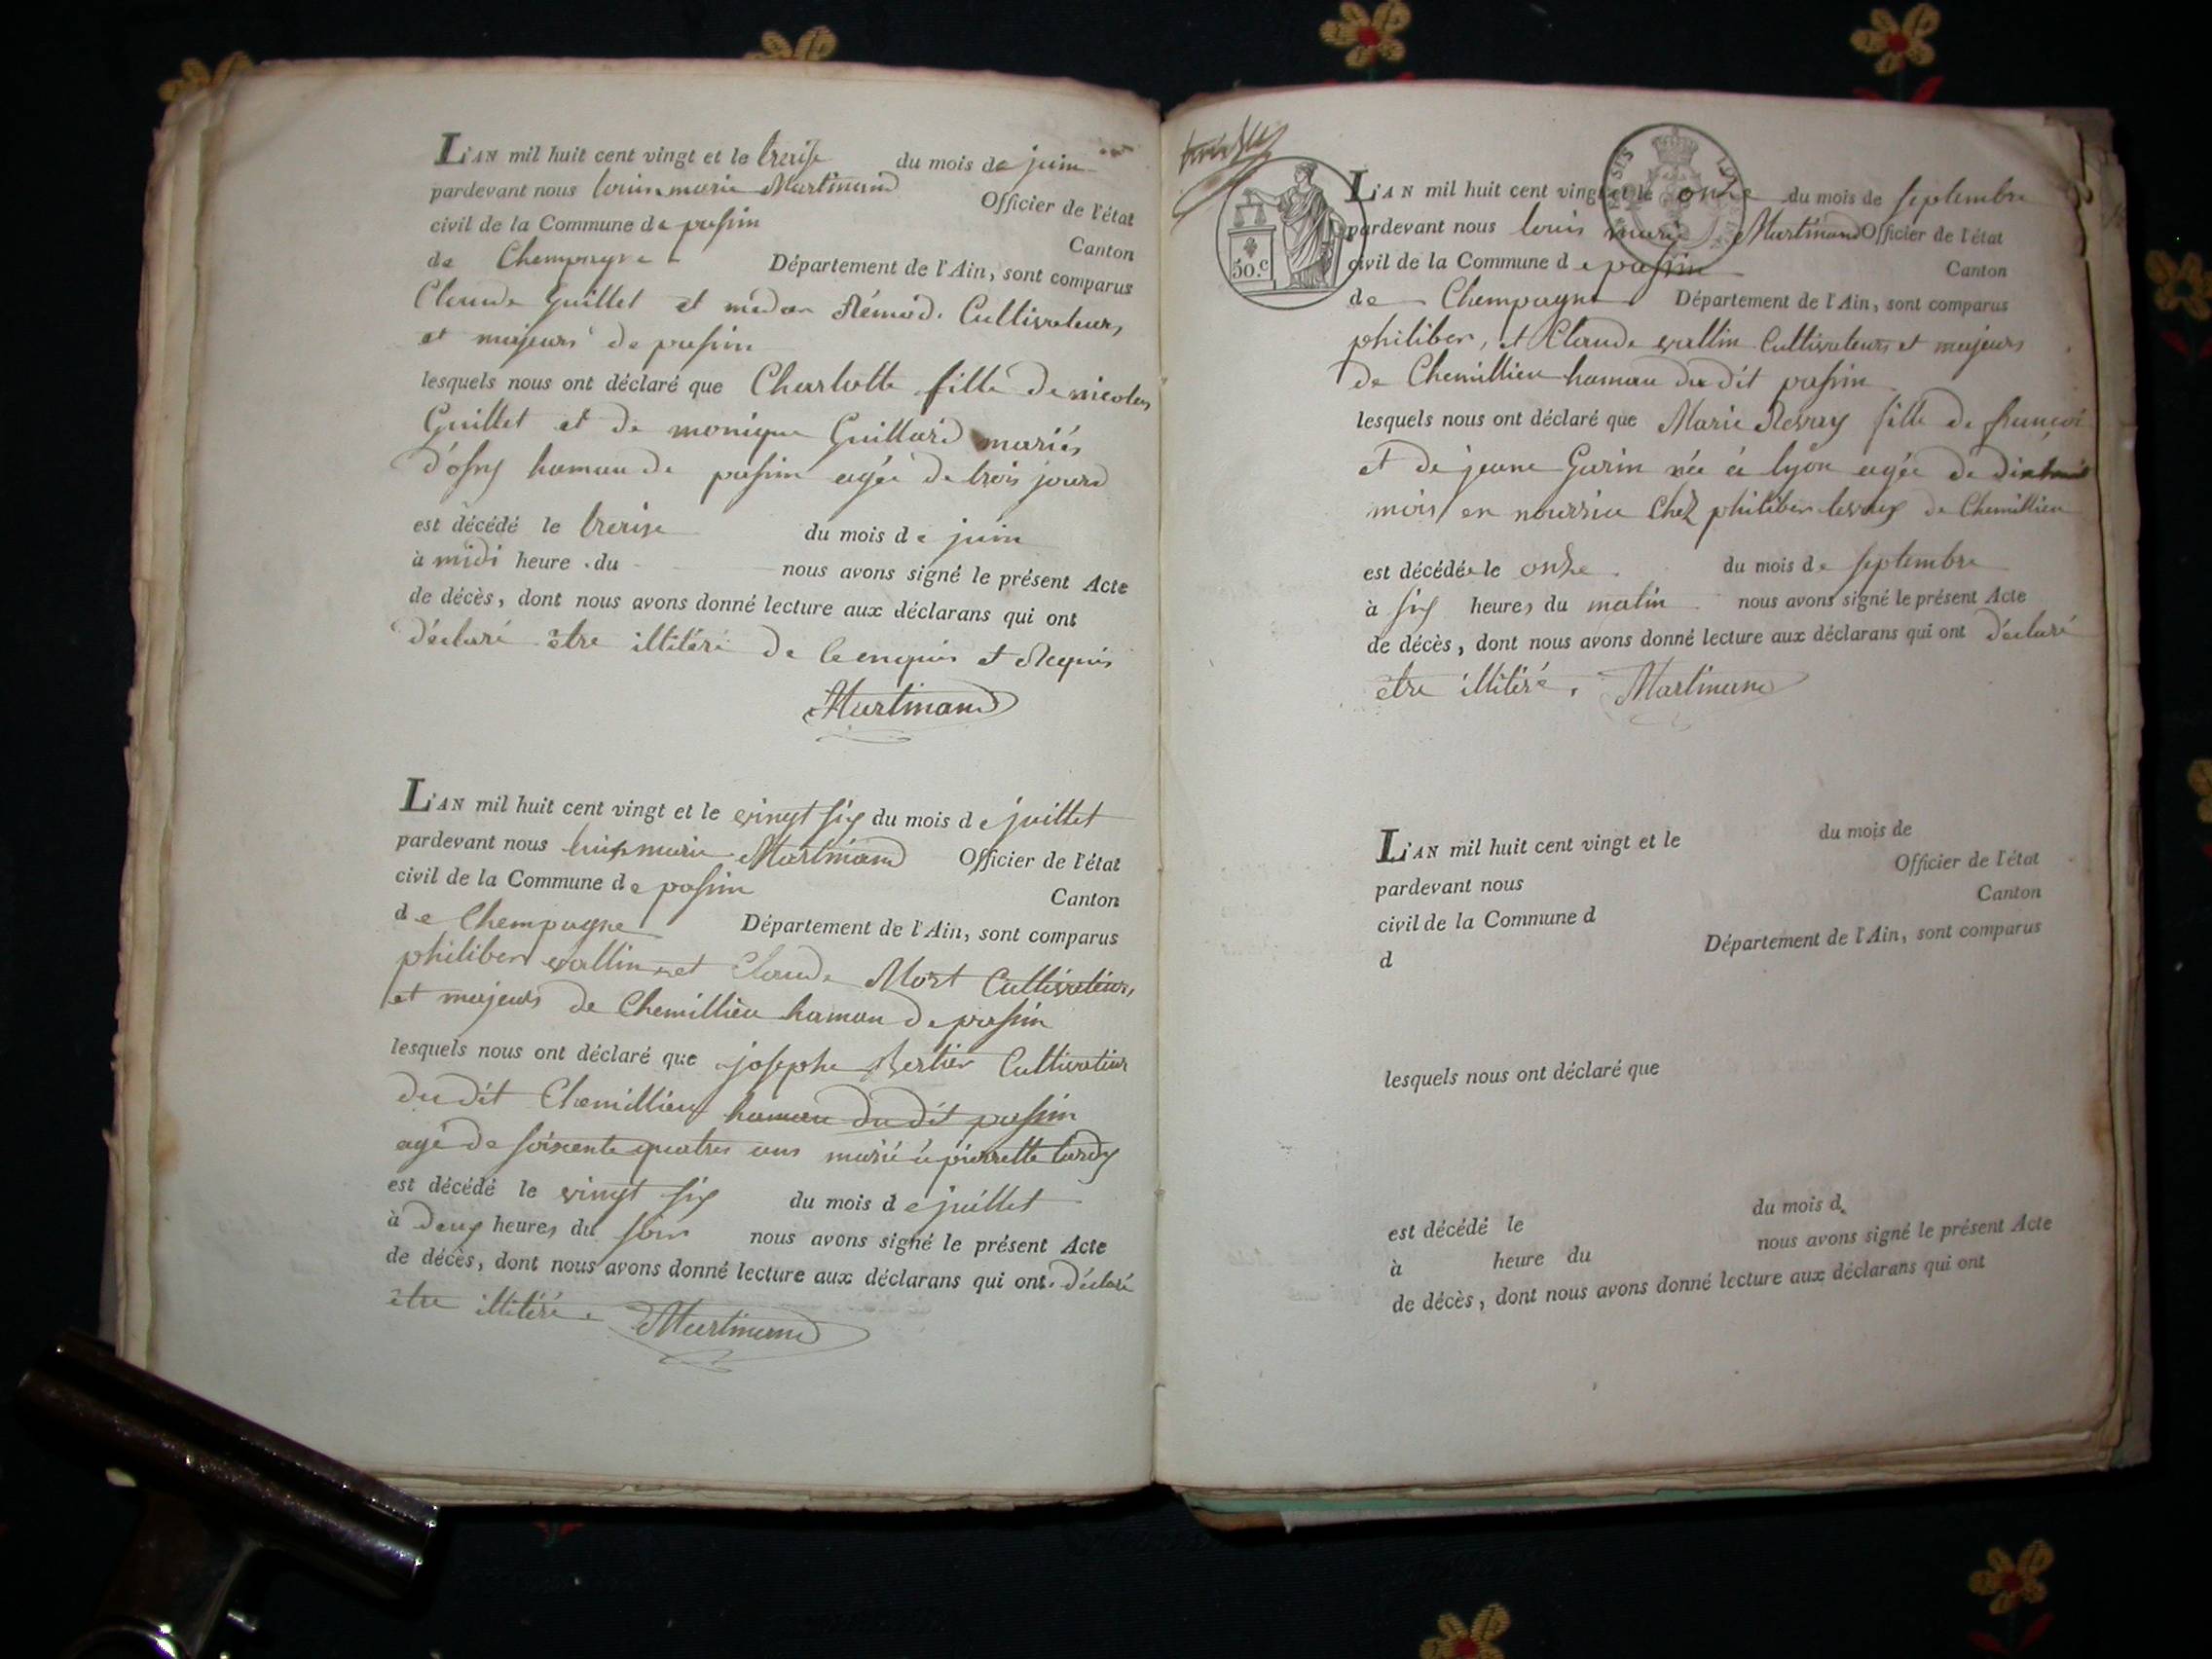 L'AN mil huit cent vingt et le treise du mois de juin
pardevant nous louis marie Martinand Officier de l'état
civil de la Commune de passin Canton
de Champagne Département de l'Ain, sont comparus
Claude Guillet et médar Rémod. Cultivateurs,
et majeurs de passin
lesquels nous ont déclaré que Charlotte fille de nicolas
Guillet et de monique Guillard mariés
d'ossy hamau de passin agée de trois jours
est décédé le treise du mois de juin
à midi heure du nous avons signé le présent Acte
de décès, dont nous avons donné lecture aux déclarans qui ont
déclaré être illitéré de enquis et Requis
Martinand
L'AN mil huit cent vingt et le vingt six du mois de juillet
pardevant nous louis marie Martinand Officier de l'état
civil de la Commune de passin Canton
de Champagne Département de l'Ain, sont comparus
philiber vallin et Claude Mort Cultivateurs,
et majeurs de Chemillieu hamau de passin
lesquels nous ont déclaré que josephe Bertier Cultivateur
du dit Chemillieu hamau du dit passin
agé de soixente quatres ans marié à pierrette tardy
est décédé le vingt six du mois de juillet
à deux heures du soir nous avons signé le présent Acte
de décès, dont nous avons donné lecture aux déclarans qui ont déclaré
être illitéré. Martinand
50.c
L'AN mil huit cent vingt et le onze du mois de septembre
pardevant nous louis marie Martinand Officier de l'état
civil de la Commune de passin Canton
de Champagne Département de l'Ain, sont comparus
philiber, et Claude vallin Cultivateurs et majeurs
de Chemillieu hamau du dit passin
lesquels nous ont déclaré que Marie fille de françoi
et de jeane Garin née à lyon agée de dixhuit
mois en nourrice Chez philiber de Chemillieu
est décédée le onze du mois de septembre
à six heures du matin nous avons signé le présent Acte
de décès, dont nous avons donné lecture aux déclarans qui ont déclaré
etre illitéré. Martinand
L'AN mil huit cent vingt et le du mois de
pardevant nous Officier de l'état
civil de la Commune d Canton
d Département de l'Ain, sont comparus
lesquels nous ont déclaré que
est décédé le du mois d
à heure du nous avons signé le présent Acte
de décès, dont nous avons donné lecture aux déclarans qui ont